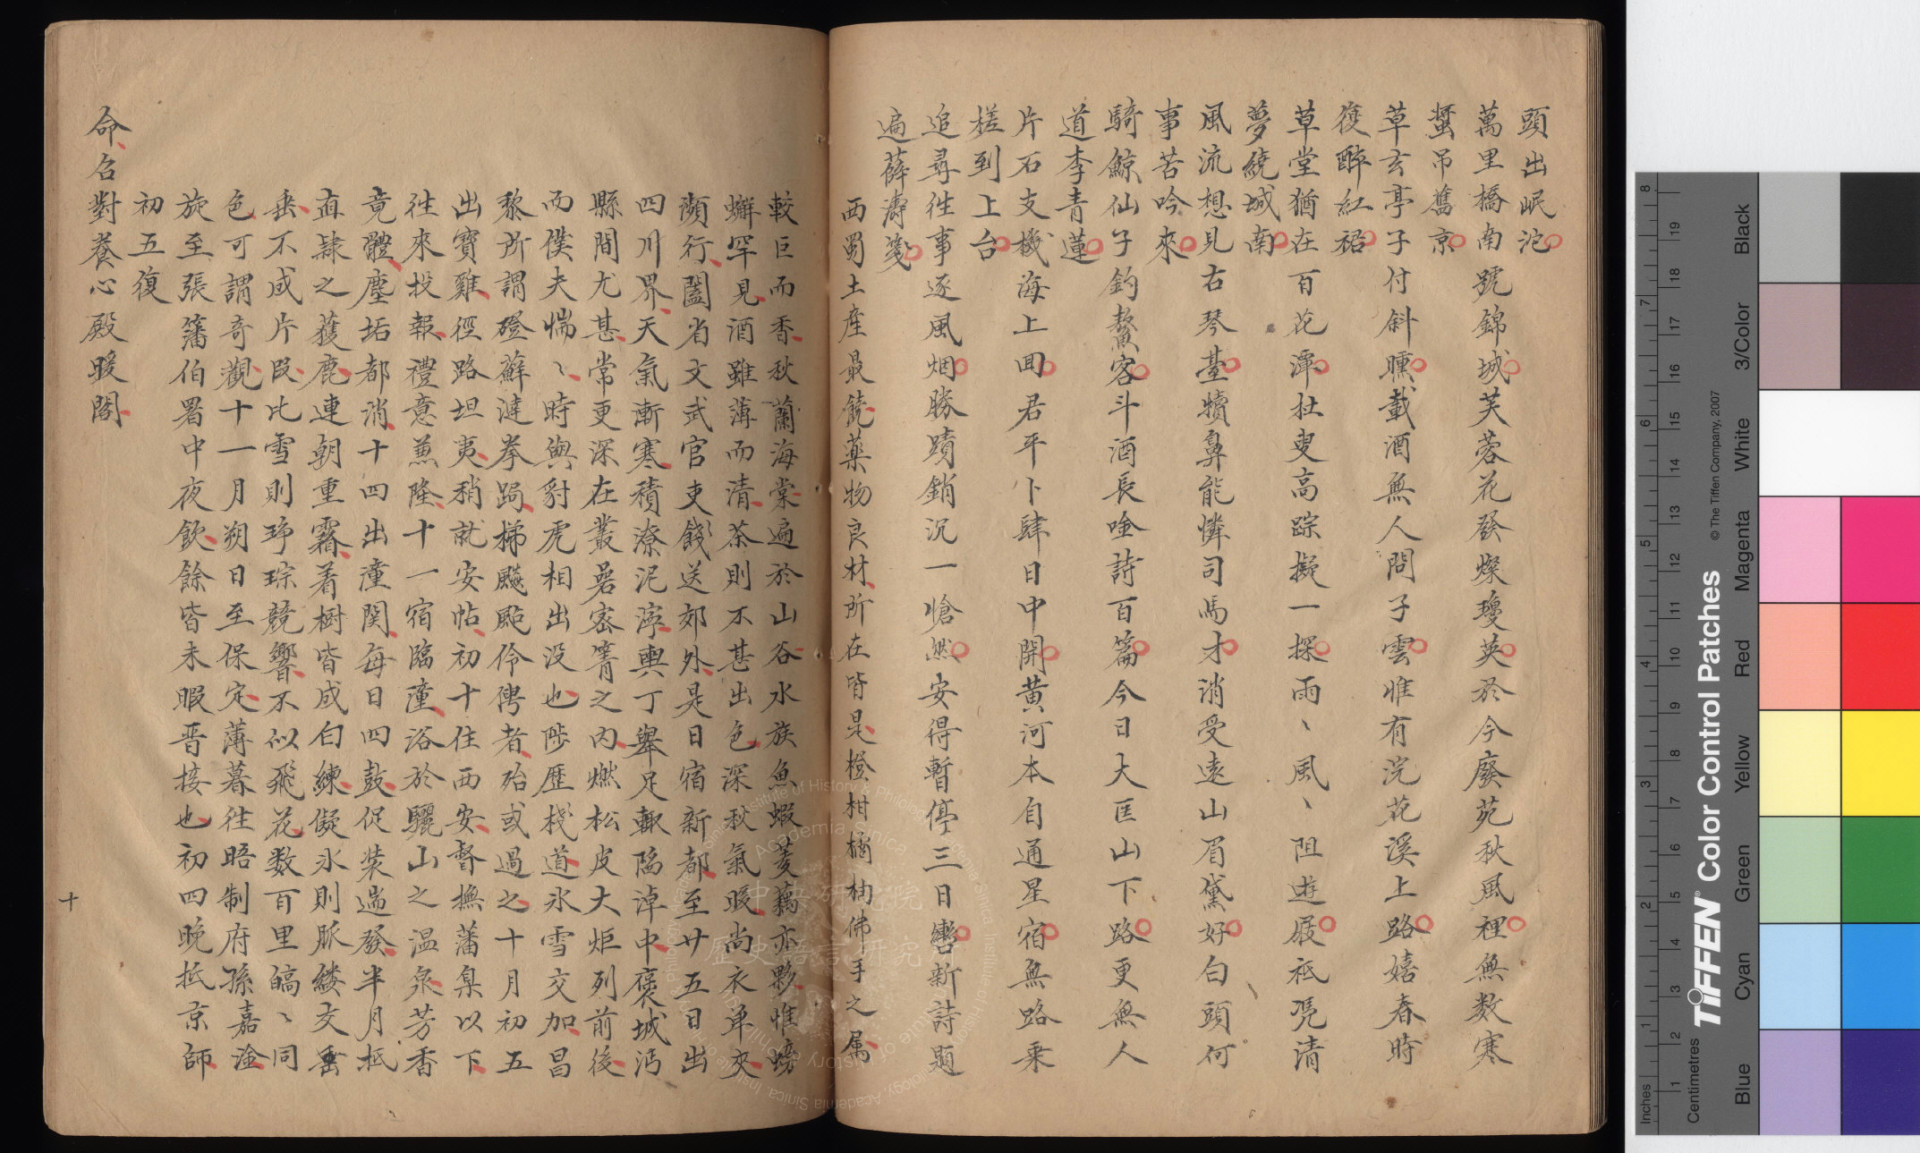 頭出岷沱
萬里橋南號錦城芙蓉花發燦瓊英於今廢苑秋風裡無数寒
螿吊舊京
草玄亭子付斜曛載酒無人問子雲惟有浣花溪上路嬉春時
復醉紅裙
草堂猶在百花潭杜叟高踪擬一探雨〻風〻阻遊屐祗凭清
夢繞城南
風流想見右琴臺犢鼻能憐司馬才消受遠山眉黛好白頭何
事苦吟來
騎鯨仙子釣鰲客斗酒長吟詩百篇今日大匡山下路更無人
道李青蓮
片石支機海上回君平卜肆日中開黄河本自通星宿無路乘
槎到上台
追尋徃事逐風烟勝蹟銷沉一愴然安得暫停三日轡新詩題
遍薛濤箋
西蜀土産最饒藥物良材所在皆是橙柑橘柚佛手之属
較巨而香秋蘭海棠遍於山谷水族魚蝦菱藕亦夥惟螃
蠏罕見酒雖薄而清茶則不甚出色深秋氣暖尚衣单夾
瀕行闔省文武官吏餞送郊外是日宿新都至廿五日出
四川界天氣漸寒積潦泥濘輿丁舉足輒陷淖中褒城沔
縣間尤甚常更深在叢嵒密箐之内燃松皮大炬列前後
而僕夫惴〻時與豺虎相出没也陟歷棧道氷雪交加昌
黎所謂磴蘚澾拳跼梯飈颭伶俜者殆或過之十月初五
出寶雞徑路坦夷稍就安帖初十住西安督撫藩臬以下
徃來投報禮意兼隆十一宿臨潼浴於驪山之温泉芳香
竟體塵垢都消十四出潼関每日四鼓促装遄發半月抵
直隸之獲鹿連朝重霧着樹皆成白練凝氷則脈縷交垂
垂不成片段比雪則琤琮競響不似飛花数百里皜〻同
色可謂奇觀十一月朔日至保定薄暮徃晤制府孫嘉淦
旋至張籓伯署中夜飲餘皆未暇晋接也初四晚抵京師
初五復
命召對養心殿暖閣
十